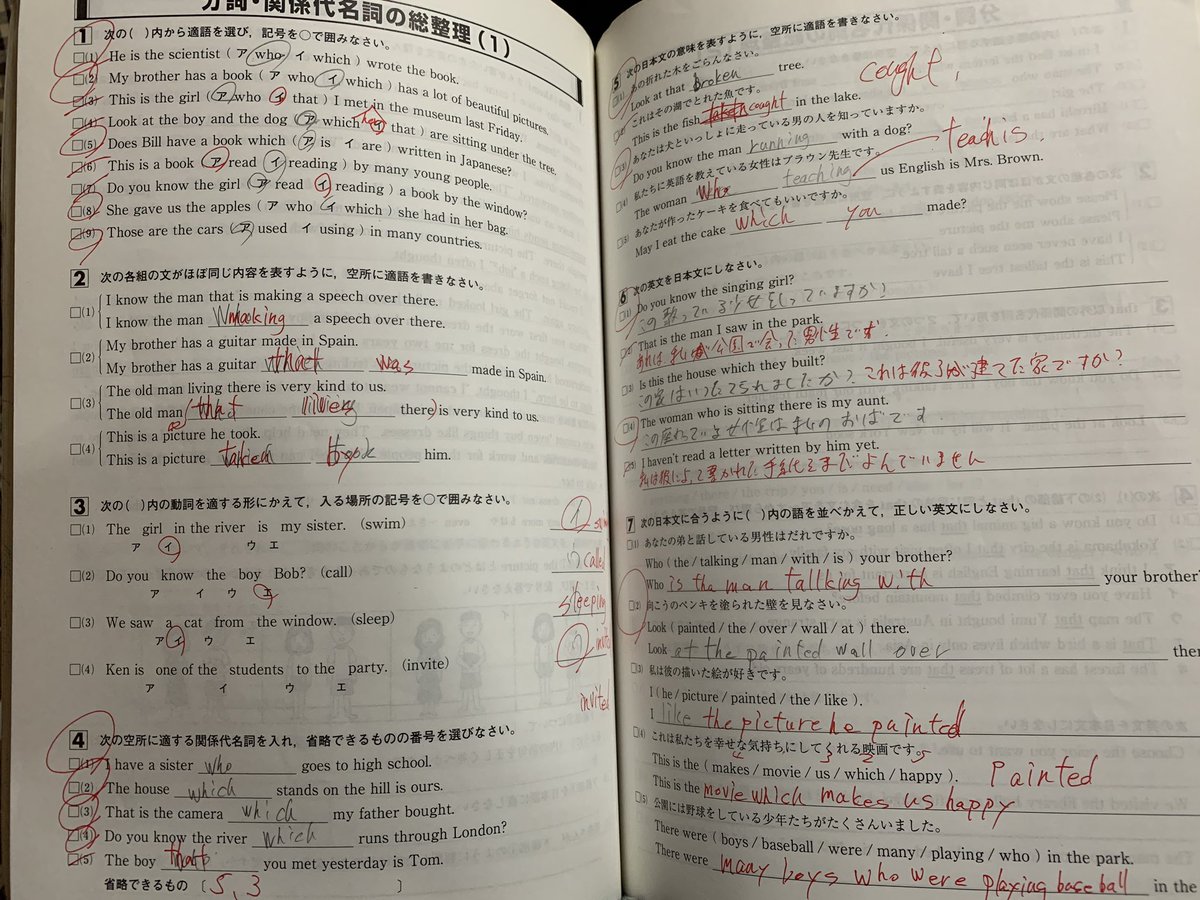 分詞・関係代名詞の総整理(1)
1 次の( )内から適語を選び,記号を○で囲みなさい。
□(1) He is the scientist ( ア who イ which ) wrote the book.
□(2) My brother has a book ( ア who イ which ) has a lot of beautiful pictures.
□(3) This is the girl ( ア who イ that ) I met in the museum last Friday.
□(4) Look at the boy and the dog ( ア which イ that ) are sitting under the tree.
□(5) Does Bill have a book which ( ア is イ are ) written in Japanese?
□(6) This is a book ( ア read イ reading ) by many young people.
□(7) Do you know the girl ( ア read イ reading ) a book by the window?
□(8) She gave us the apples ( ア who イ which ) she had in her bag.
□(9) Those are the cars ( ア used イ using ) in many countries.
2 次の各組の文がほぼ同じ内容を表すように,空所に適語を書きなさい。
□(1) I know the man that is making a speech over there.
I know the man making a speech over there.
□(2) My brother has a guitar made in Spain.
My brother has a guitar that was made in Spain.
□(3) The old man living there is very kind to us.
The old man that there is very kind to us.
□(4) This is a picture he took.
This is a picture taken him.
3 次の( )内の動詞を適する形にかえて,入る場所の記号を○で囲みなさい。
□(1) The girl in the river is my sister. (swim)
ア イ ウ エ
イ
□(2) Do you know the boy Bob? (call)
ア イ ウ エ
called
□(3) We saw a cat from the window. (sleep)
ア イ ウ エ
sleeping
□(4) Ken is one of the students to the party. (invite)
ア イ ウ エ
invited
4 次の空所に適する関係代名詞を入れ,省略できるものの番号を選びなさい。
□(1) I have a sister who goes to high school.
□(2) The house which stands on the hill is ours.
□(3) That is the camera which my father bought.
□(4) Do you know the river which runs through London?
□(5) The boy that you met yesterday is Tom.
省略できるもの 〔 5, 3 〕
5 次の日本文の意味を表すように,空所に適語を書きなさい。
□(1) あの折れた木をごらんなさい。
Look at that broken tree.
cought,
□(2) これはその湖でとれた魚です。
This is the fish cought in the lake.
□(3) あなたは犬といっしょに走っている男の人を知っていますか。
Do you know the man running with a dog?
teach is.
□(4) 私たちに英語を教えている女性はブラウン先生です。
The woman who teaching us English is Mrs. Brown.
□(5) あなたが作ったケーキを食べてもいいですか。
May I eat the cake which you made?
6 次の英文を日本文にしなさい。
□(1) Do you know the singing girl?
この歌っている少女を知っていますか?
□(2) That is the man I saw in the park.
あれは私が公園で会った男性です
□(3) Is this the house which they built?
この家はいつたてられましたか? これは彼らが建てた家ですか?
□(4) The woman who is sitting there is my aunt.
この座っている女性は私のおばです
□(5) I haven't read a letter written by him yet.
私は彼によって書かれた手紙をまだよんでいません
7 次の日本文に合うように( )内の語を並べかえて,正しい英文にしなさい。
□(1) あなたの弟と話している男性はだれですか。
Who ( the / talking / man / with / is ) your brother?
Who is tha man tallking with your brother?
□(2) 向こうのペンキを塗られた壁を見なさい。
Look ( painted / the / over / wall / at ) there.
Look at the painted wall over ther
□(3) 私は彼の描いた絵が好きです。
I ( he / picture / painted / the / like ).
I like the picture he painted
□(4) これは私たちを幸せな気持ちにしてくれる映画です。
This is the ( makes / movie / us / which / happy ).
Painted
This is the movie which makes us happy
□(5) 公園には野球をしている少年たちがたくさんいました。
There were ( boys / baseball / were / many / playing / who ) in the park.
There were many boys who were playing baseball in the